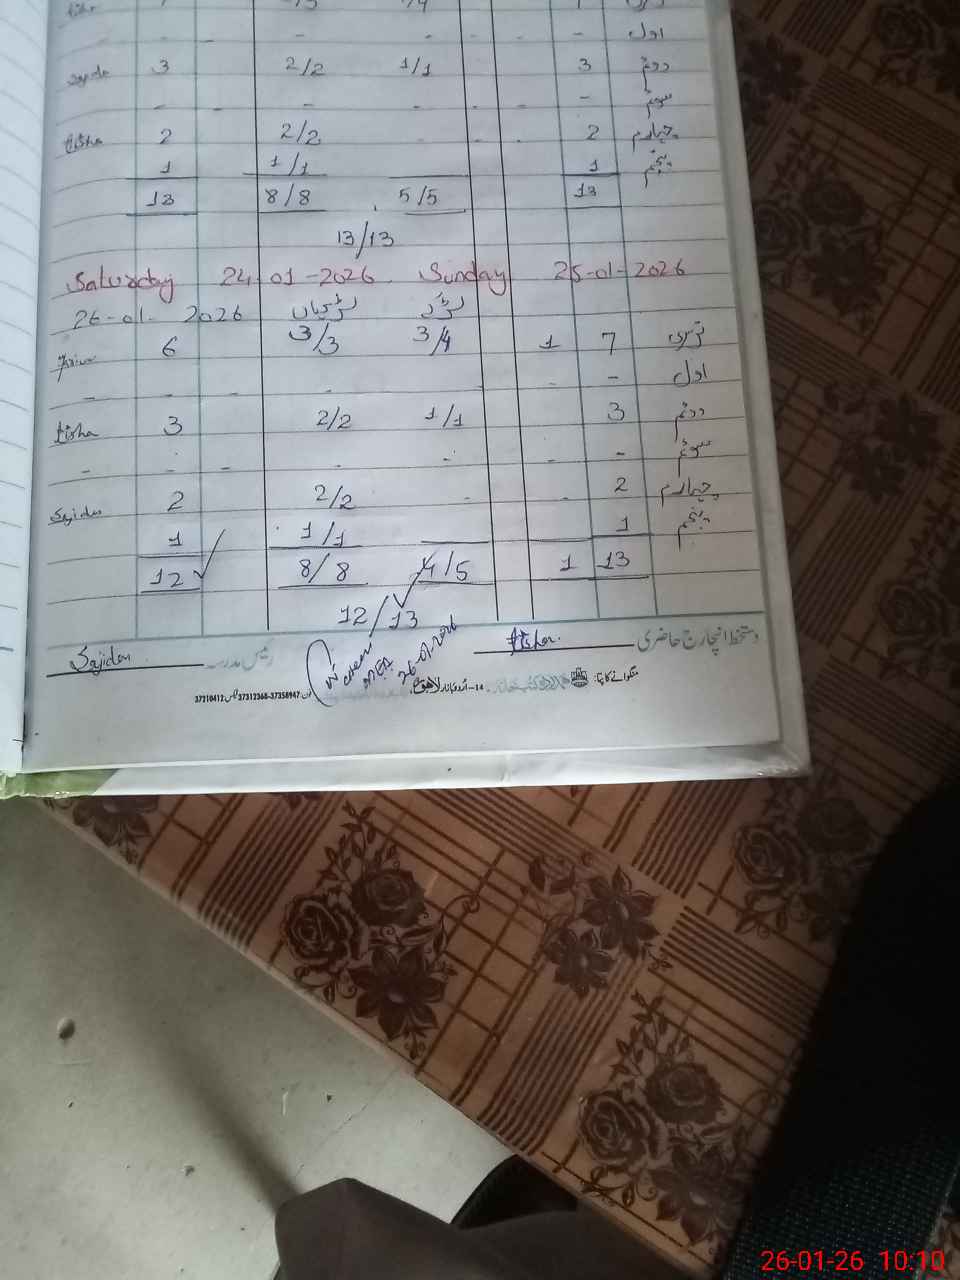 - - - - - اول
Sajida 3 2/2 1/1 3 دوئم
- - - - - - سوئم
tisha 2 2/2 - - - 2 چہارم
1 1/1 1 پنجم
13 8/8 5/5 13
13/13
Saturday 24-01-2026 Sunday 25-01-2026
26-01-2026 لڑکیاں لڑکے
6 3/3 3/4 1 7 نرسری
- - - - - - اول
tisha 3 2/2 1/1 3 دوئم
- - - - - - - سوئم
Sajida 2 2/2 - - 2 چہارم
1 1/1 1 پنجم
12 8/8 4/5 1 13
12/13
دستخط انچارج حاضری tisha. رئیس مدرسہ Sajida
MEA
26-01-2026
منگوانے کا پتا: 14-اردو بازار لاہور 37358947-37312368 37210412
26-01-26 10:10